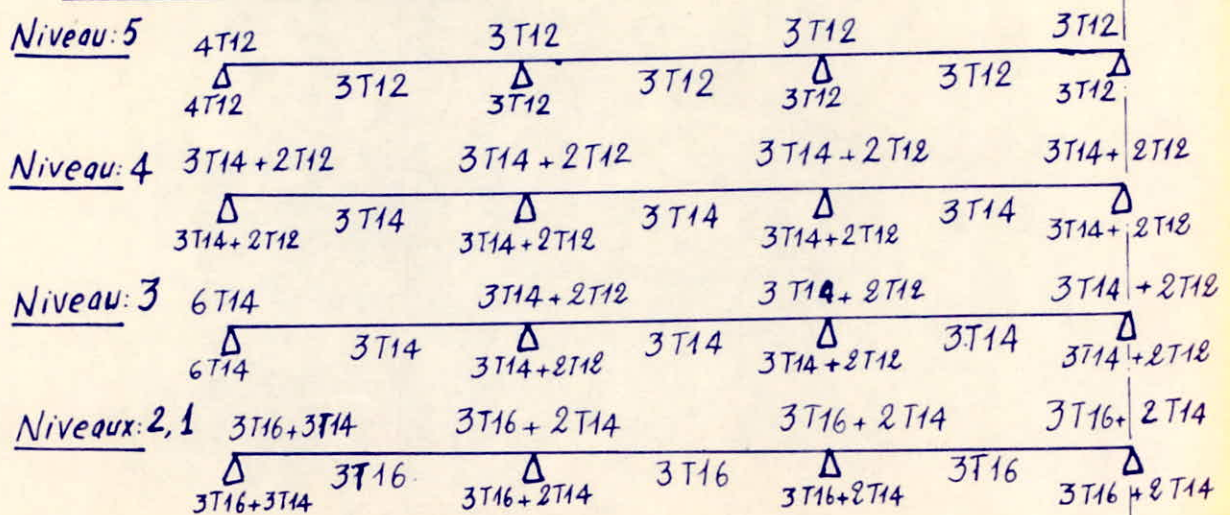 Niveau: 5 4T12 3T12 3T12 3T12
3T12 3T12 3T12
4T12 3T12 3T12 3T12
Niveau: 4 3T14+2T12 3T14+2T12 3T14+2T12 3T14+2T12
3T14 3T14 3T14
3T14+2T12 3T14+2T12 3T14+2T12 3T14+2T12
Niveau: 3 6T14 3T14+2T12 3T14+2T12 3T14+2T12
3T14 3T14 3T14
6T14 3T14+2T12 3T14+2T12 3T14+2T12
Niveaux: 2,1 3T16+3T14 3T16+2T14 3T16+2T14 3T16+2T14
3T16 3T16 3T16
3T16+3T14 3T16+2T14 3T16+2T14 3T16+2T14